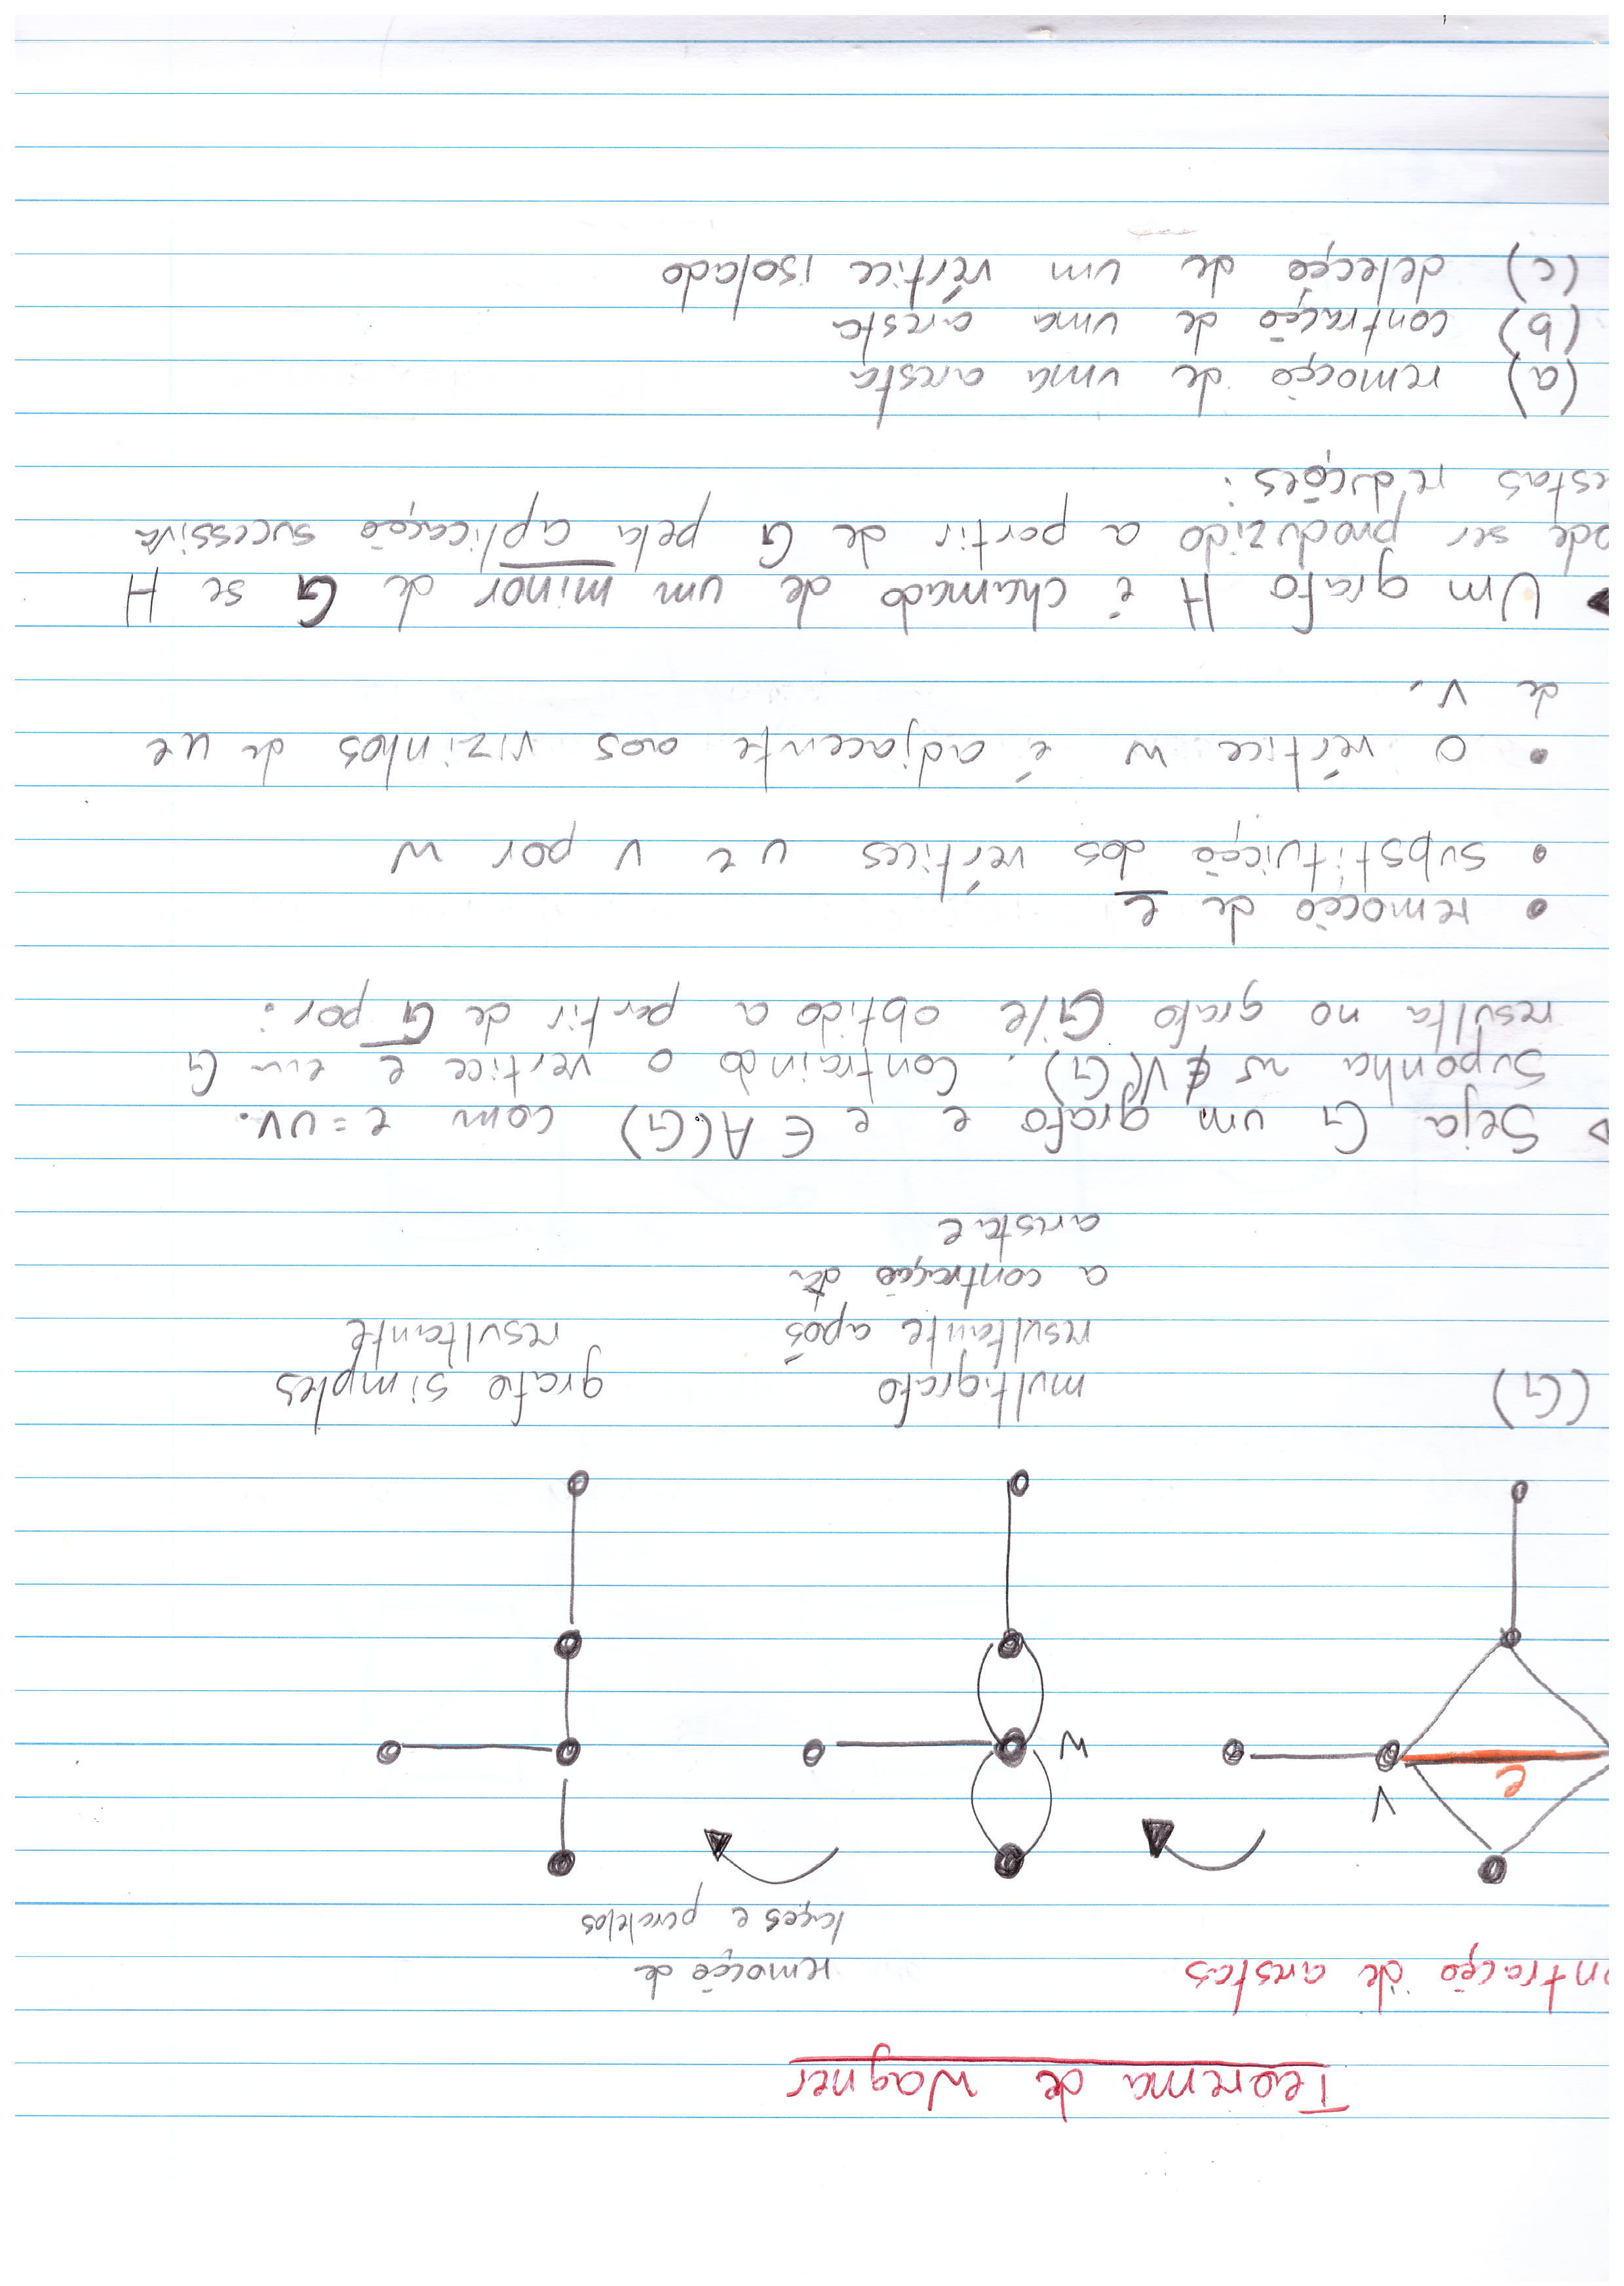 Teorema de Wagner
ontração de arestas
remoção de
laços e paralelos
e
V
W
(G)
multigrafo
resultante após
a contração da
aresta e
grafo simples
resultante
Seja G um grafo e e ∈ A(G) com e = uv.
Suponha w ∉ V(G). Contraindo o vertice e em G
resulta no grafo G/e obtido a partir de G por:
• remoção de e
• substituição dos vértices u e v por w
• o vértice w é adjacente aos vizinhos de u e
de v.
Um grafo H é chamado de um minor de G se H
ode ser produzido a partir de G pela aplicação sucessiva
estas reduções:
(a) remoção de uma aresta
(b) contração de uma aresta
(c) deleção de um vértice isolado